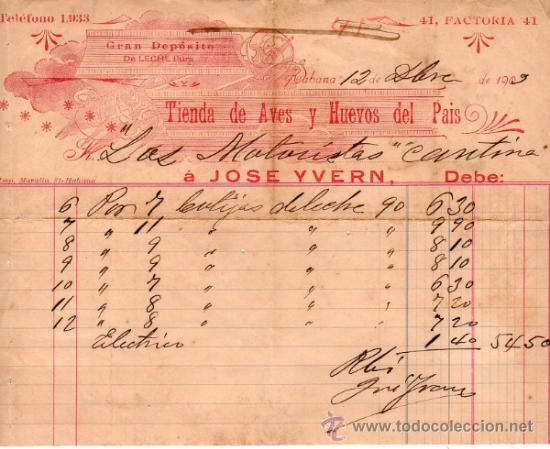 Teléfono 1,933
41, FACTORIA 41
Gran Depósito
De LECHE Pura
Habana 12 de Dbre de 1909
Tienda de Aves y Huevos del Pais
"Los Motoristas" Cantina
Imp. Maralla 81-Habana
á JOSE YVERN, Debe:
6 Por 7 botijas de leche 90 6 30
7 " 11 " " " 9 90
8 " 9 " " " 8 10
9 " 9 " " " 8 10
10 " 7 " " " 6 30
11 " 8 " " " 7 20
12 " 8 " " " 7 20
Electrico 1 40 54 50
Rbí
José Yvern
todocoleccion.net